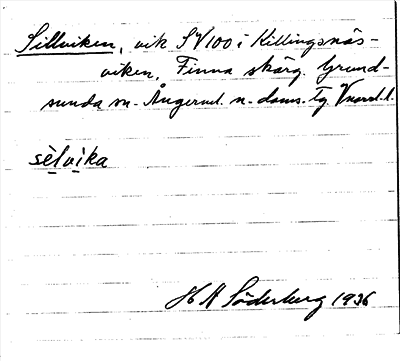 Sillviken, vik SV100 i Killingsnäs-
viken, Finna skärg. Grund-
sunda sn. Ångerml. n. doms. Tg Vnorrl. l.
sèlvìka
H A Söderberg 1936